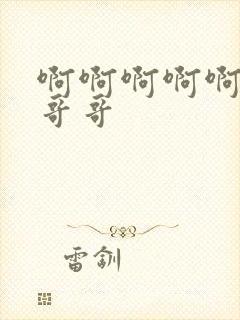 啊啊啊啊啊
哥哥
雷釧